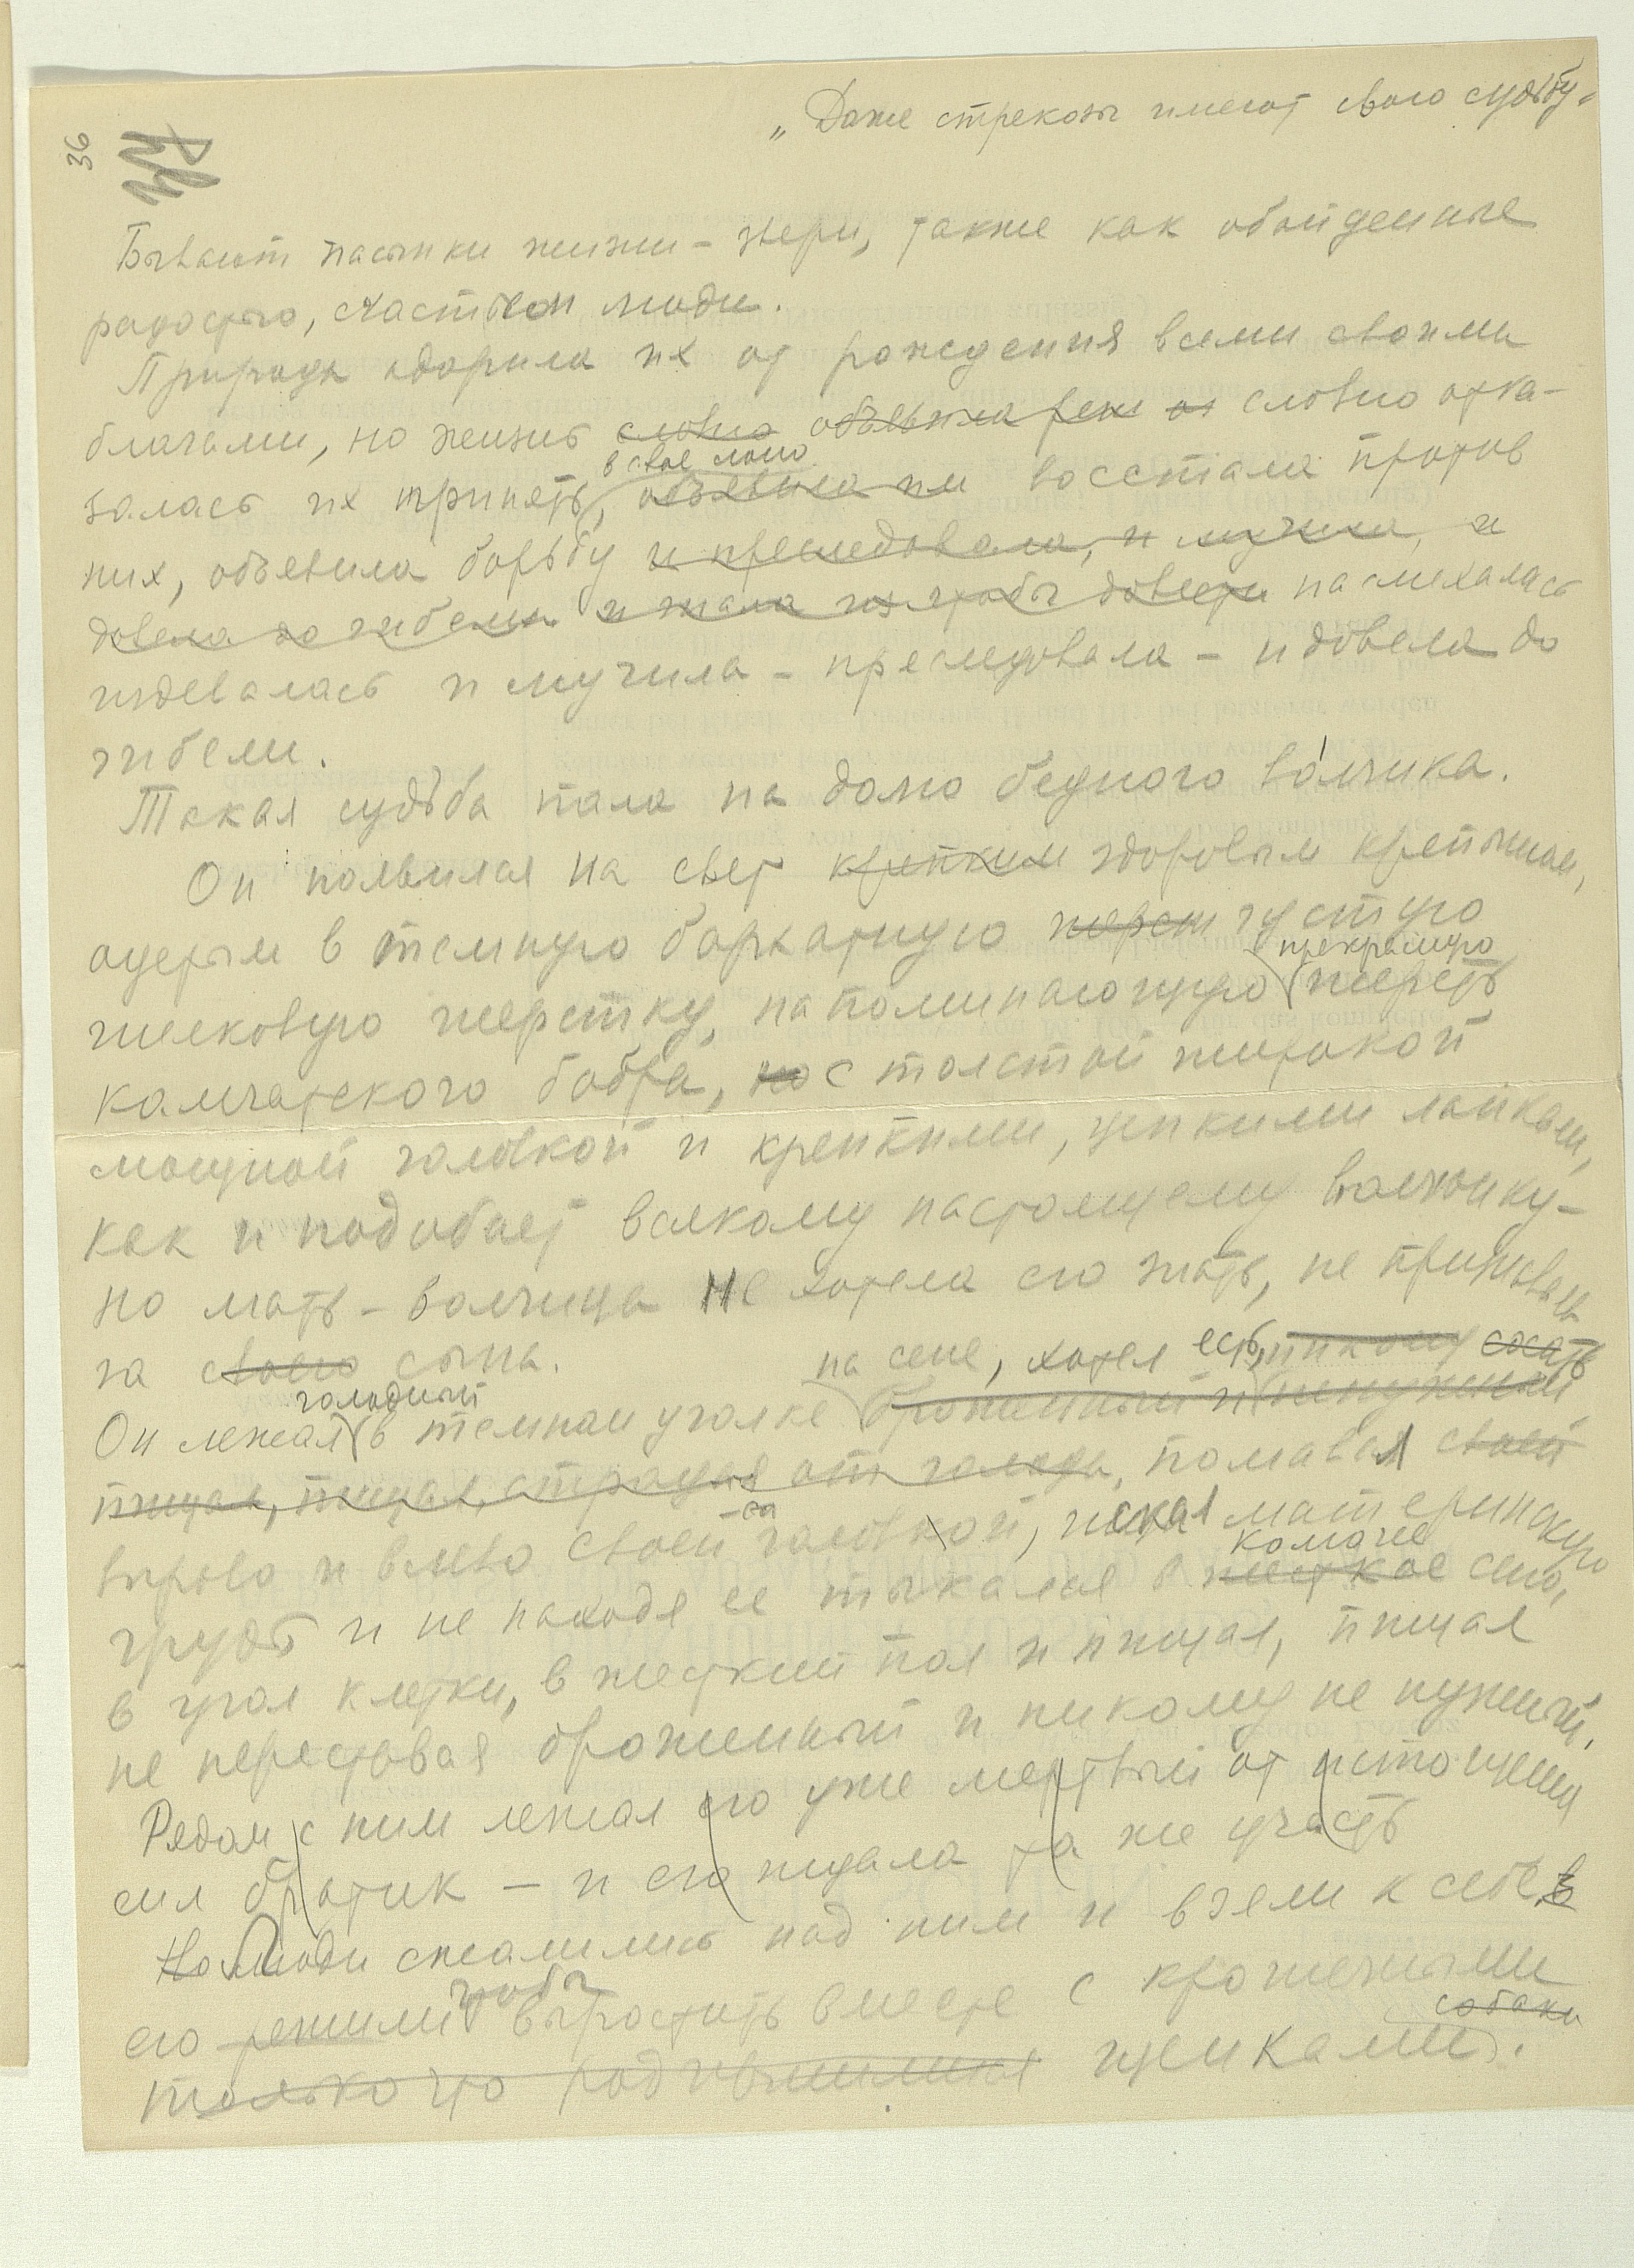 36
„Даже стрекозы имеют свою судьбу“
Бывают пасынки жизни – звери, также как обойденные
радостью, счастьем люди.
Природа одарила их от рождения всеми своими
благами, но жизнь словно объявила словно отка-
в свое лоно
залась их принять, объявила им восстала против
них, объявила борьбу и преследовала, и мучила, и
довела до гибели. и гнала их чтобы довести насмехалась
издевалась и мучила – преследовала – и довела до
гибели.
Такая судьба пала на долю бедного во́лчика.
Он появился на свет крепким здоровым крепышом,
одетым в темную бархатную шерст густую
прекрасную
шелковую шерстку, напоминающую шерсть
камчатского бобра, но с толстой широкой
мощной головкой и крепкими, цепкими лапками,
как и подобает всякому настоящему волчонку –
но мать – волчица не хотела его знать, не признавала
за своего сына.
на сене, хотел есть, никому сосать
голодный
Он лежал в темном уголке брошенный и ненужный
пищал, пищал, страдая от голода, помавая своей
вправо и влево своей головкой, искал материнскую
комочие
грудь и не находя ее тыкался в жесткое сено,
в угол клетки, в жесткий пол и пищал, пищал
не переставая брошенный и никому не нужный.
Рядом с ним лежал его уже мертвый от истощения
сил братик – и его ждала та же участь
Но Люди сжалились над ним и взяли к себе
чтобы
его решили вырастить вместе с крошечными
собаки
только что родившимися щенками.